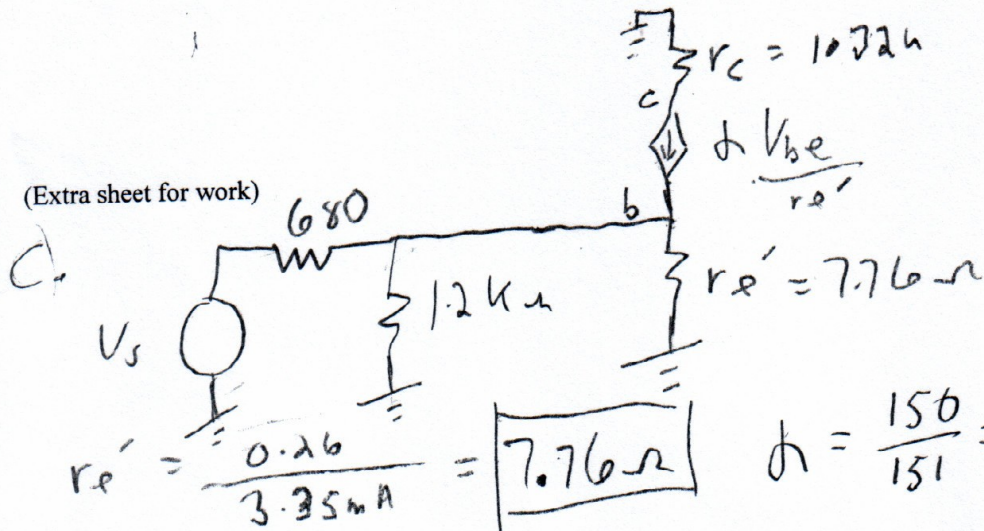 rc = 10.32k
c
α Vbe / re′
(Extra sheet for work)
680
b
C.
Vs
1.2 K Ω
re′ = 7.76 Ω
re′ = 0.26 / 3.35mA = 7.76 Ω
α = 150 / 151 =